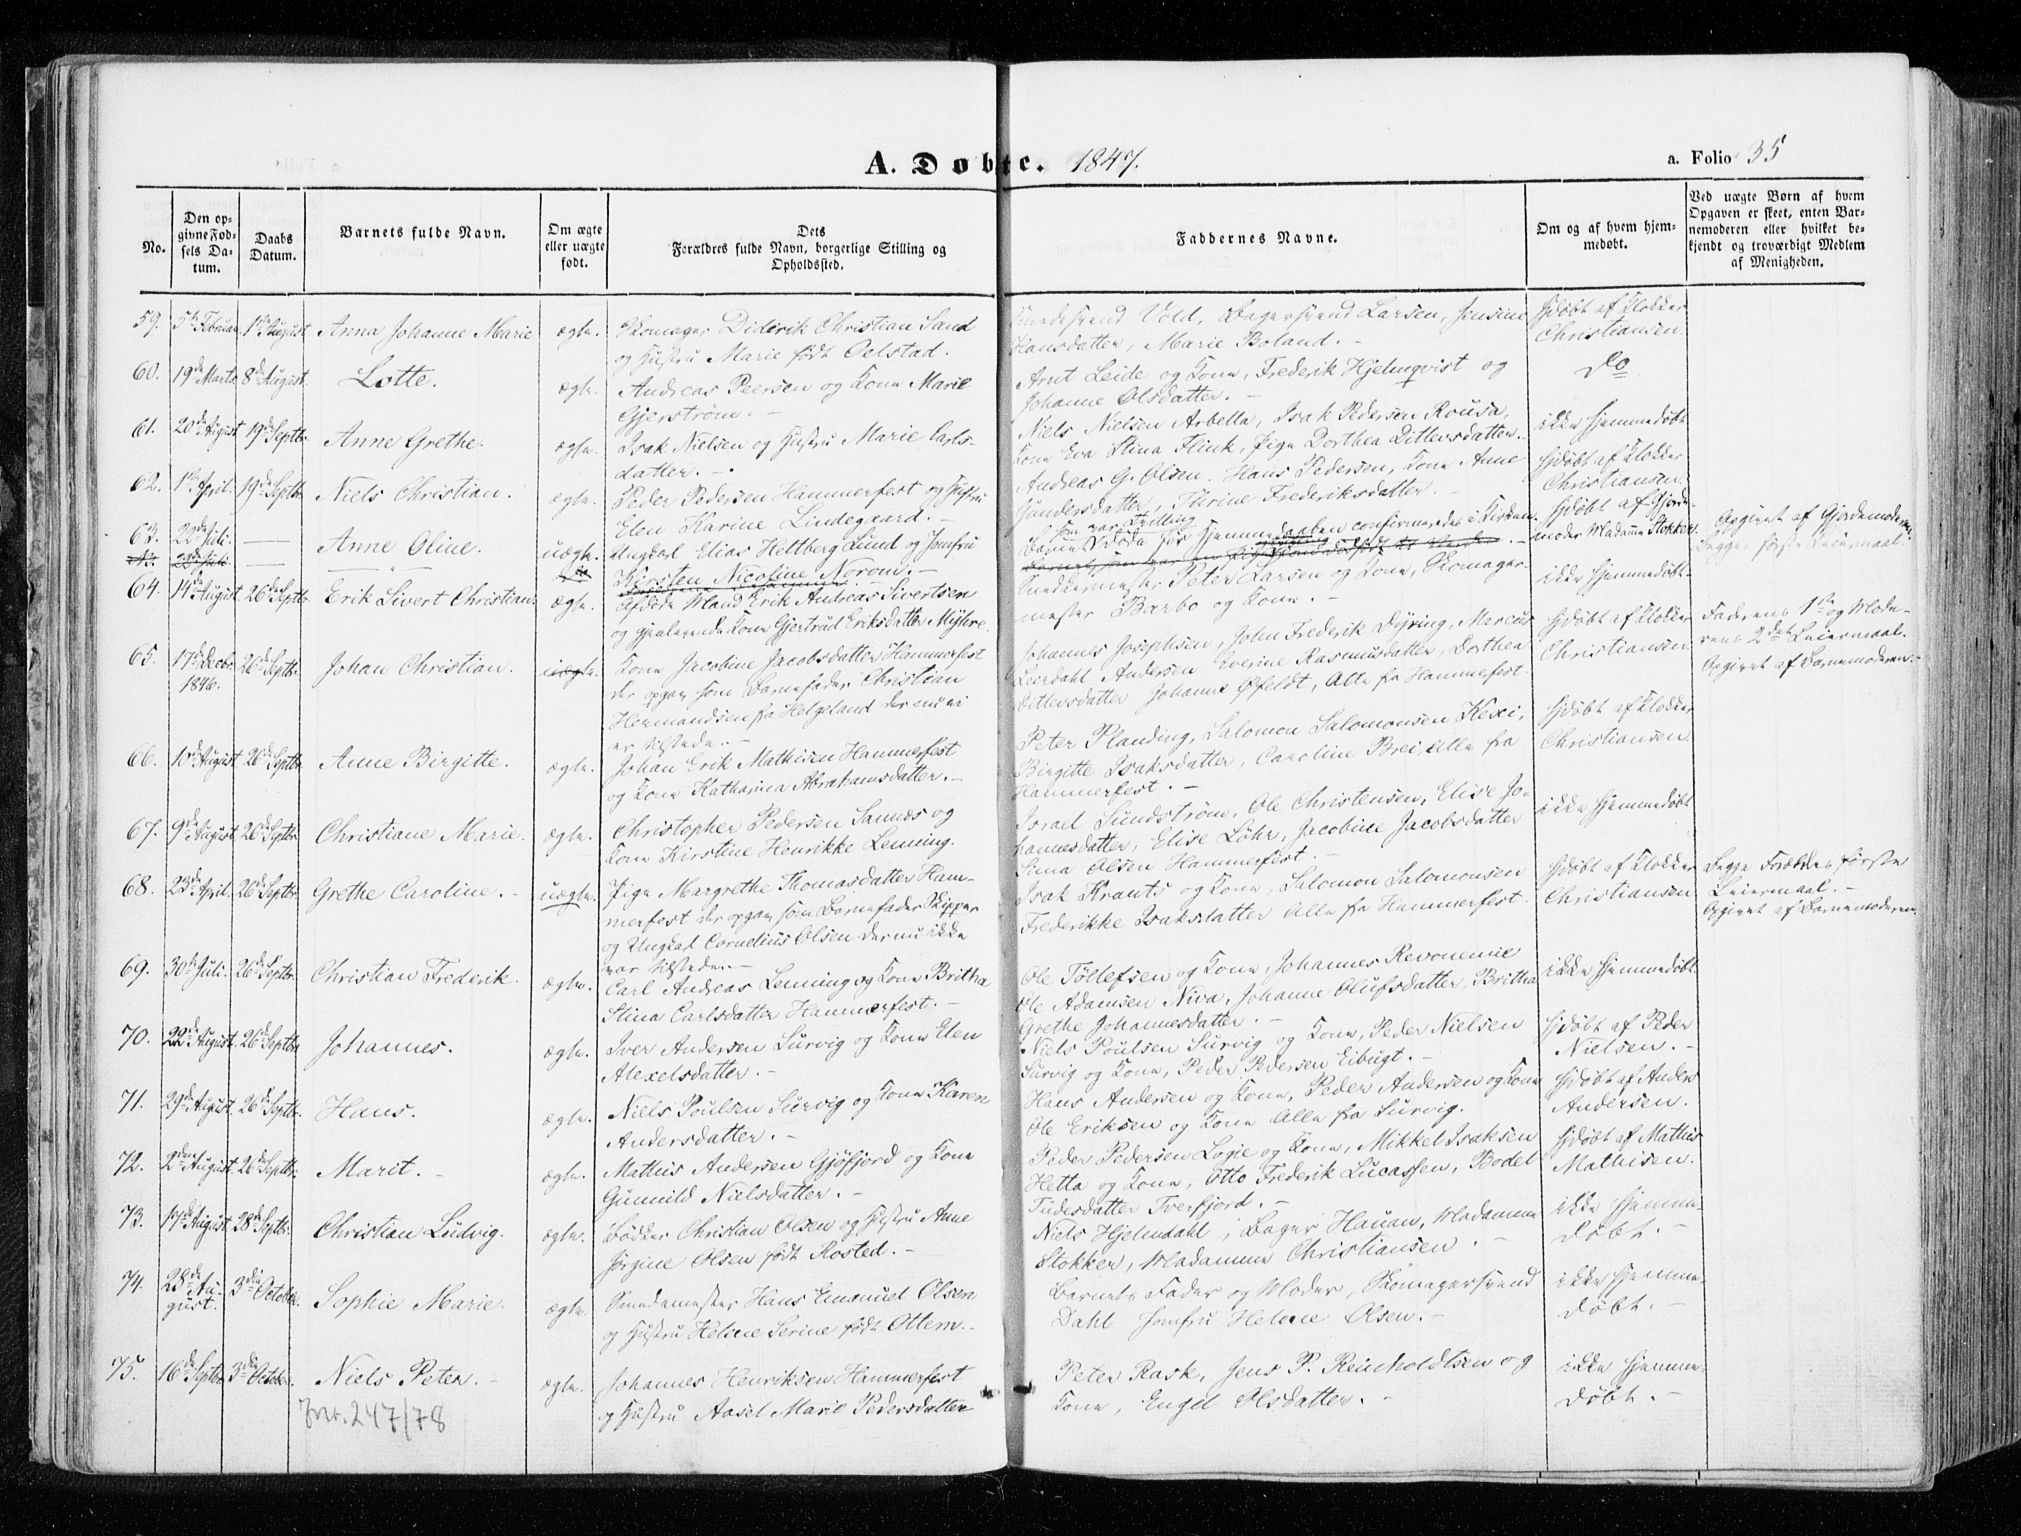 A. Døbte. 1847.
a. Folio 35
No.
Den op-
givne Fød-
sels Da-
tum.
Daabs
Datum.
Barnets fulde Navn.
Om ægte
eller uægte
født.
Dets
Forældres fulde Navn, borgerlige Stilling og
Opholdssted.
Faddernes Navne.
Om og af hvem hjem-
medøbt.
Ved uægte Børn af hvem
Opgaven er skeet, enten Bar-
nemoderen eller hvilket be-
kjendt og troværdigt Medlem
af Menigheden.
59. 5te Februar 1ste August Anna Johanne Marie ægte. Skomager Diderik Christian Sand
og Hustru Marie født Oelstad.
Smedesvend Vold, Bagersvend Larsen, Jensine
Hansdatter, Marie Boland.
Hjdøbt af Klokker
Christiansen.
60. 19de Marts 8de August. Lotte. ægte. Andreas Peersen og Kone Marie
Gjerstrøm.
Arnt Leide og Kone, Frederik Hjelmqvist og
Johanne Olsdatter.
Do
61. 20de August 19de Septbr. Anne Grethe. ægte. Isak Nielsen og Hustru Marie Carls-
datter.
Niels Nielsen Arbella, Isak Pedersen Rousa,
Kone Eva Stina Flink, Pige Dorthea Dittersdatter.
ikke hjemmedøbt
62. 1ste April. 19de Septbr. Niels Christian. ægte. Peder Pedersen Hammerfest og Hustru
Elen Karine Lindegaard.
Andreas G. Olsen. Hans Pedersen, Kone Anne
Gundersdatter, Thrine Frederiksdatter.
Hjdøbt af Klokker
Christiansen.
63. 22de Juli. Anne Oline. uægte. Ungkarl Elias Heltberg Lund og Jomfru
Kirsten Nicoline Norom.
som var Tvilling
Barnet døde før Hjemmedaaben confirmeredes i Kirken.
Hjdøbt af Gjorde-
moder Madame Stokker.
Opgivet af Gjordemoderen.
Begges første Leiermaal.
64. 14de August 26de Septbr. Erik Sivert Christian. ægte. Afdøde Mand Erik Andreas Sivertsen
og gjenlevende Kone Gjertrud Eriksdatter Myhre.
Snedkermester Peter Larsen og Kone, Skomager-
mester Barbo og Kone.
ikke hjemmedøbt.
65. 17de Decbr. 26de Septbr. Johan Christian. uægte. Kone Jacobine Jacobsdatter Hammerfest
1846.
der opgav som Barnefader Christian
Hermandsen fra Helgeland der nu ei
er tilstede.
Johannes Josephsen, John Frederik Dyring, Marcus
Leerdahl Andersen Everine Rasmusdatter, Dorthea
Dittersdatter Johanne Øfeldt, Alle fra Hammerfest.
Hjdøbt af Klokker
Christiansen.
Faderens 1ste og Mode-
rens 2det Leiermaal.
Opgivet af Barnemoderen.
66. 10de August 26de Septbr. Anne Birgitte. ægte. Johan Erik Mathisen Hammerfest
og Kone Katharina Abrahamsdatter.
Peter Planding, Salomon Salomonsen Kexi,
Birgitte Isaksdatter, Caroline Brei, alle fra
Hammerfest.
Hjdøbt af Klokker
Christiansen
67. 9de August. 26de Septbr. Christiane Marie. ægte. Christopher Pedersen Sannæs og
Kone Kirstine Henrikke Lenning.
Israel Sundstrøm, Ole Christensen, Elise Jo-
hannesdatter, Elise Löhr, Jacobine Jacobsdatter
Sima Olsen Hammerfest.
ikke hjemmedøbt
68. 23de April. 26de Septbr. Grethe Caroline. uægte. Pige Margrethe Thomasdatter Ham-
merfest der opgav som Barnefader Skipper
og Ungkarl Cornelius Olsen der nu ikke
var tilstede.
Isak Krants og Kone, Salomon Salomonsen
Frederikke Isaksdatter Alle fra Hammerfest.
Hjdøbt af Klokker
Christiansen
Begge Forældres første
Leiermaal.
Opgivet af Barnemoderen.
69. 30te Juli. 26de Septbr. Christian Frederik. ægte. Carl Andreas Lenning og Kone Britha
Stina Carlsdatter Hammerfest.
Ole Tøllefsen og Kone, Johannes Revonemie
Ole Adamsen Niva, Johanne Olufsdatter, Britha
Grethe Johannesdatter.
ikke hjemmedøbt.
70. 22de August. 26de Septbr. Johannes. ægte. Iver Andersen Survig og Kone Elen
Alexelsdatter.
Niels Poulsen Survig og Kone, Peder Nielsen
Survig og Kone, Peder Pedersen Eibugt.
Hjdøbt af Peder
Nielsen.
71. 29de August. 26de Septbr. Hans. ægte. Niels Poulsen Survig og Kone Karen
Andersdatter.
Hans Andersen og Kone, Peder Andersen og Kone
Ole Eriksen og Kone Alle fra Survig.
Hjdøbt af Anders
Andersen.
72. 2den August. 26de Septbr. Marit. ægte. Mathis Andersen Gjøfjord og Kone
Gunnild Nielsdatter.
Peder Pedersen Logie og Kone, Mikkel Isaksen
Hetta og Kone, Otto Frederik Lucassen, Bodel
Tudesdatter Tverfjord.
Hjdøbt af Mathis
Mathisen.
73. 17de August. 28de Septbr. Christian Ludvig. ægte. Bødker Christian Olsen og Hustru Anne
Jørgine Olsen født Rosted.
Niels Hjelmdahl, Bager Hauan, Madamme
Stokker, Madamme Christiansen.
ikke hjemme-
døbt.
74. 28de Au- 3die October. Sophie Marie. ægte. Smedemester Hans Emanuel Olsen
gust.
og Hustru Helene Serine født Ottem.
Barnets Fader og Moder, Skomagersvend
Dahl Jomfru Helene Olsen.
ikke hjemme-
døbt.
75. 16de Septbr. 3die October. Niels Peter. ægte. Johannes Henriksen Hammerfest
og Hustru Aasel Marie Pedersdatter
Peter Rask, Jens P. Reinholdtsen og
Kone, Engel Olsdatter.
ikke hjemme-
døbt.
Jnr. 247/78